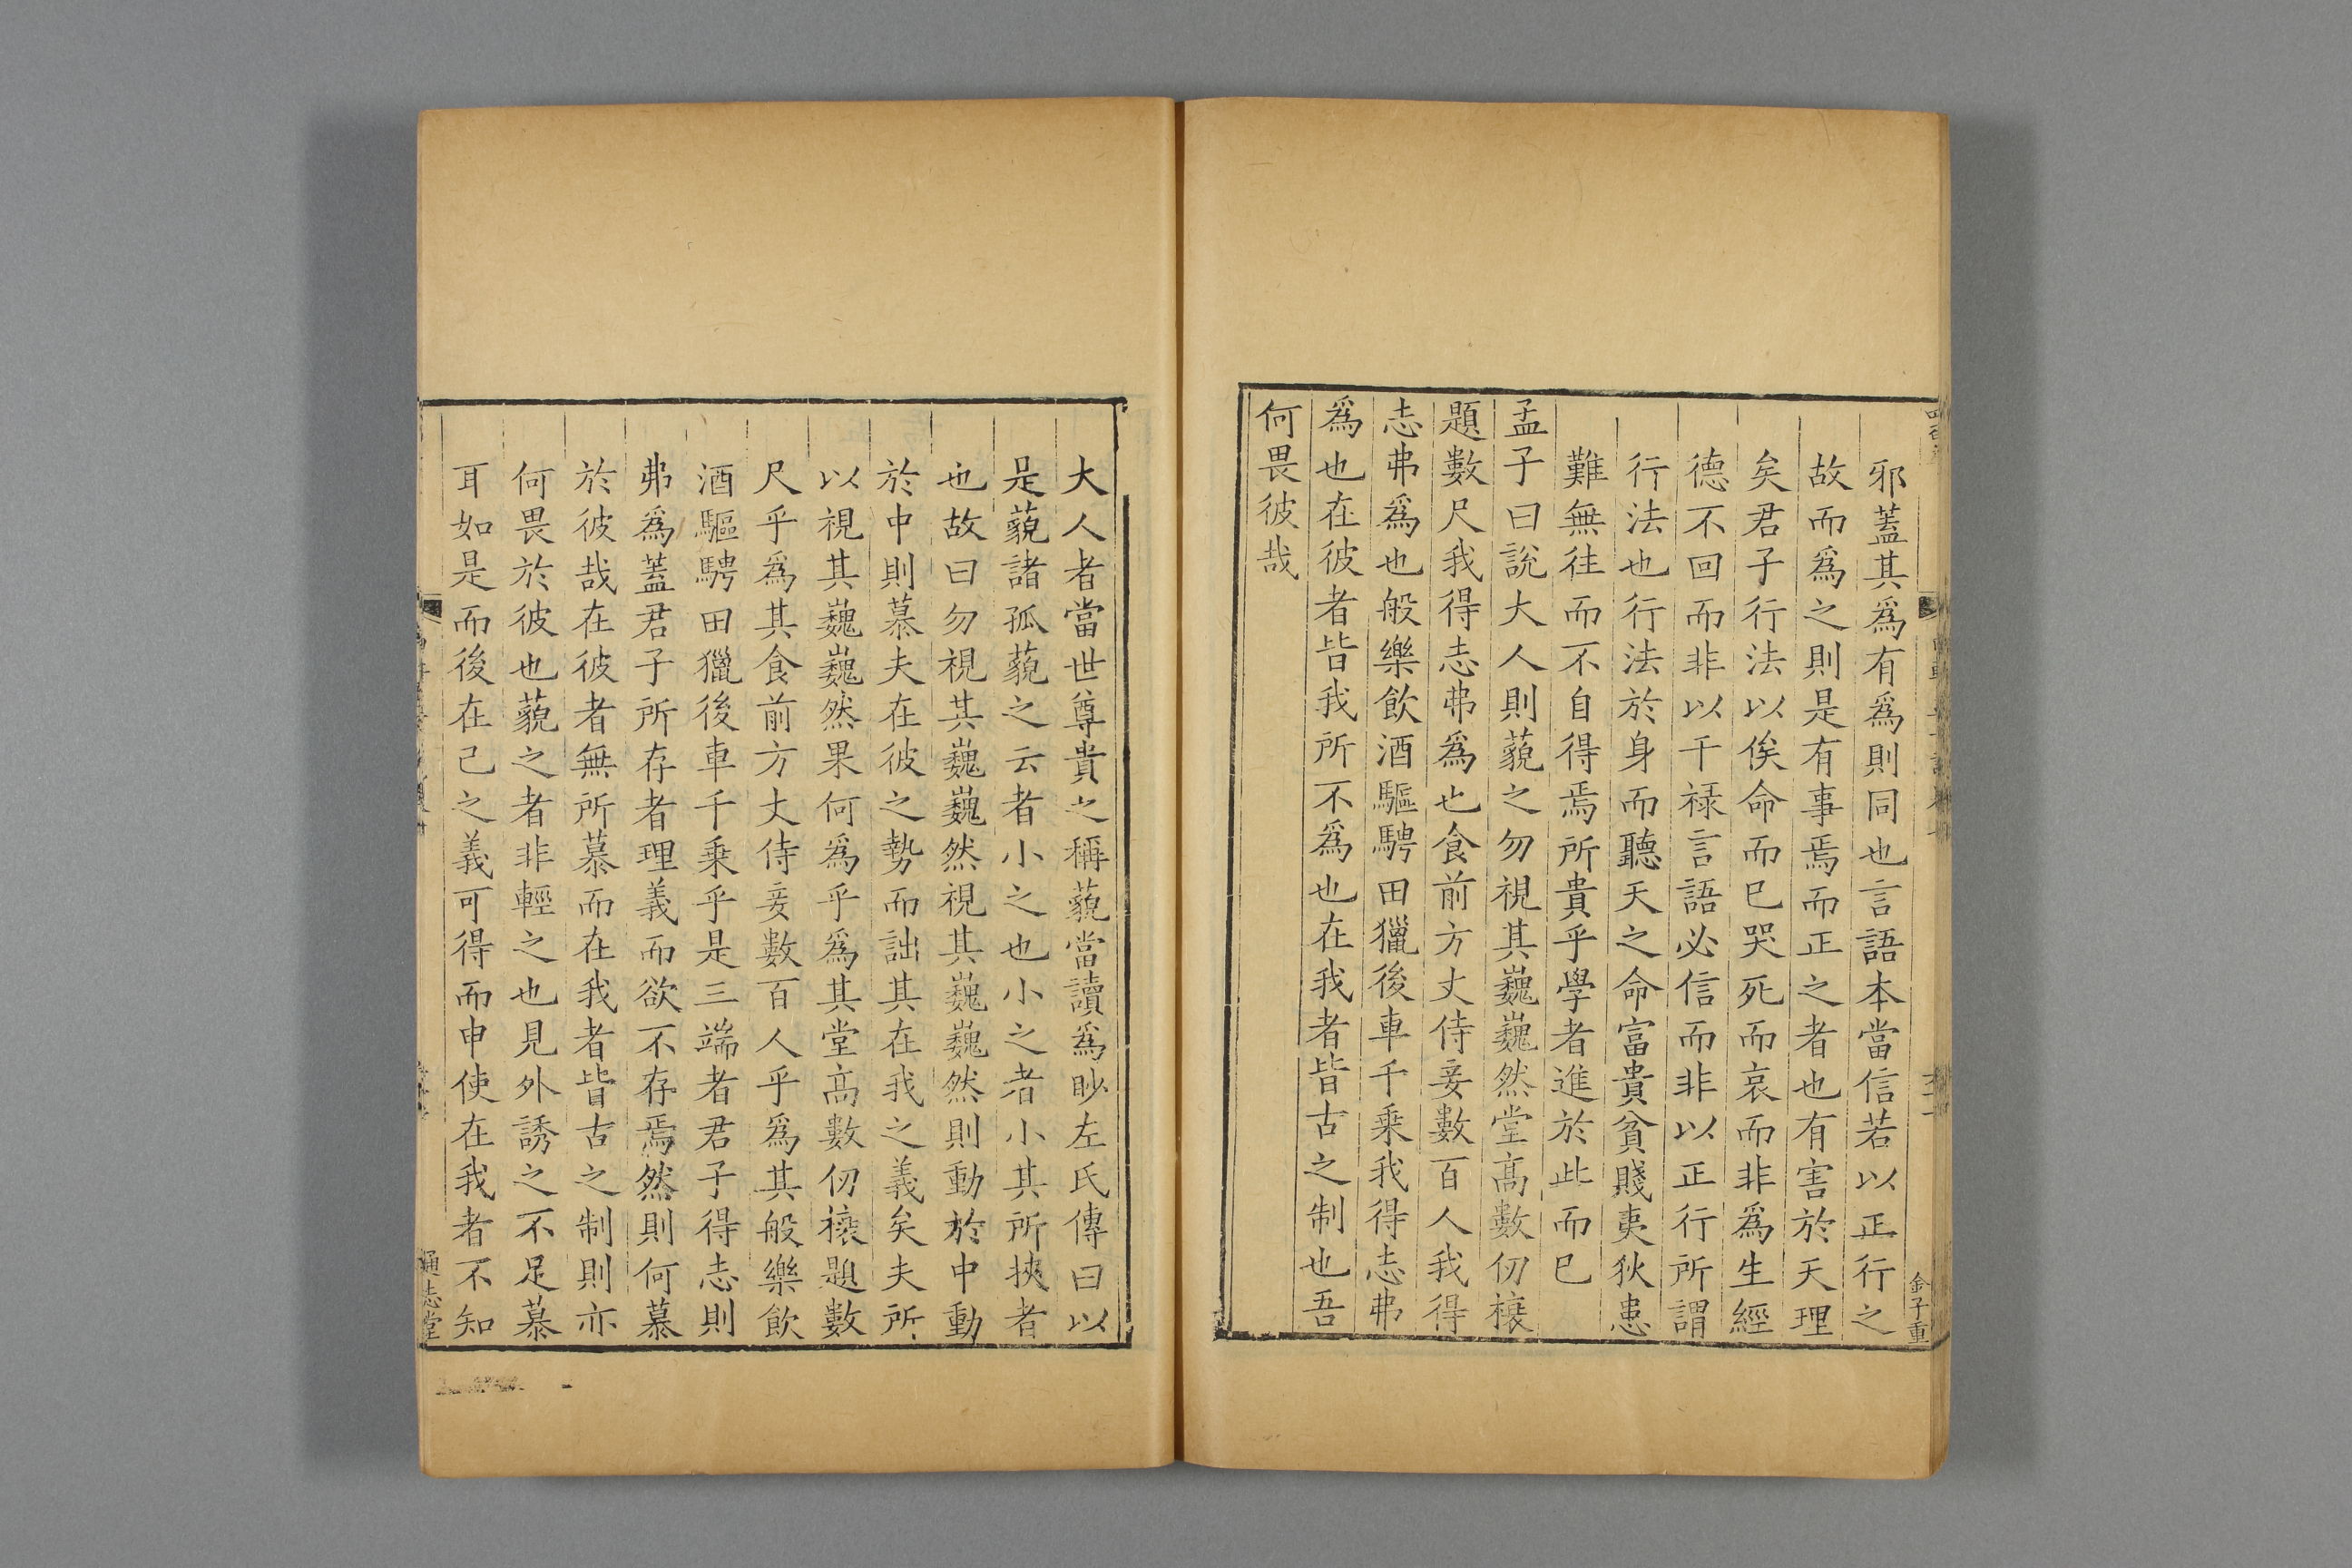 邪蓋其爲有爲則同也言語本當信若以正行之
故而爲之則是有事焉而正之者也有害於天理
矣君子行法以俟命而已哭死而哀而非爲生經
德不回而非以干禄言語必信而非以正行所謂
行法也行法於身而聽天之命富貴貧賤夷狄患
難無往而不自得焉所貴乎學者進於此而已
孟子曰說大人則藐之勿視其巍巍然堂高數仞榱
題數尺我得志弗爲也食前方丈侍妾數百人我得
志弗爲也般樂飲酒驅騁田獵後車千乗我得志弗
爲也在彼者皆我所不爲也在我者皆古之制也吾
何畏彼哉
金子重
大人者當世尊貴之稱藐當讀爲眇左氏傳曰以
是藐諸孤藐之云者小之也小之者小其所挾者
也故曰勿視其巍巍然視其巍巍然則動於中動
於中則慕夫在彼之勢而詘其在我之義矣夫所
以視其巍巍然果何爲乎爲其堂高數仞榱題數
尺乎爲其食前方丈侍妾數百人乎爲其般樂飲
酒驅騁田獵後車千乗乎是三端者君子得志則
弗爲蓋君子所存者理義而欲不存焉然則何慕
於彼哉在彼者無所慕而在我者皆古之制則亦
何畏於彼也藐之者非輕之也見外誘之不足慕
耳如是而後在己之義可得而申使在我者不知
通志堂